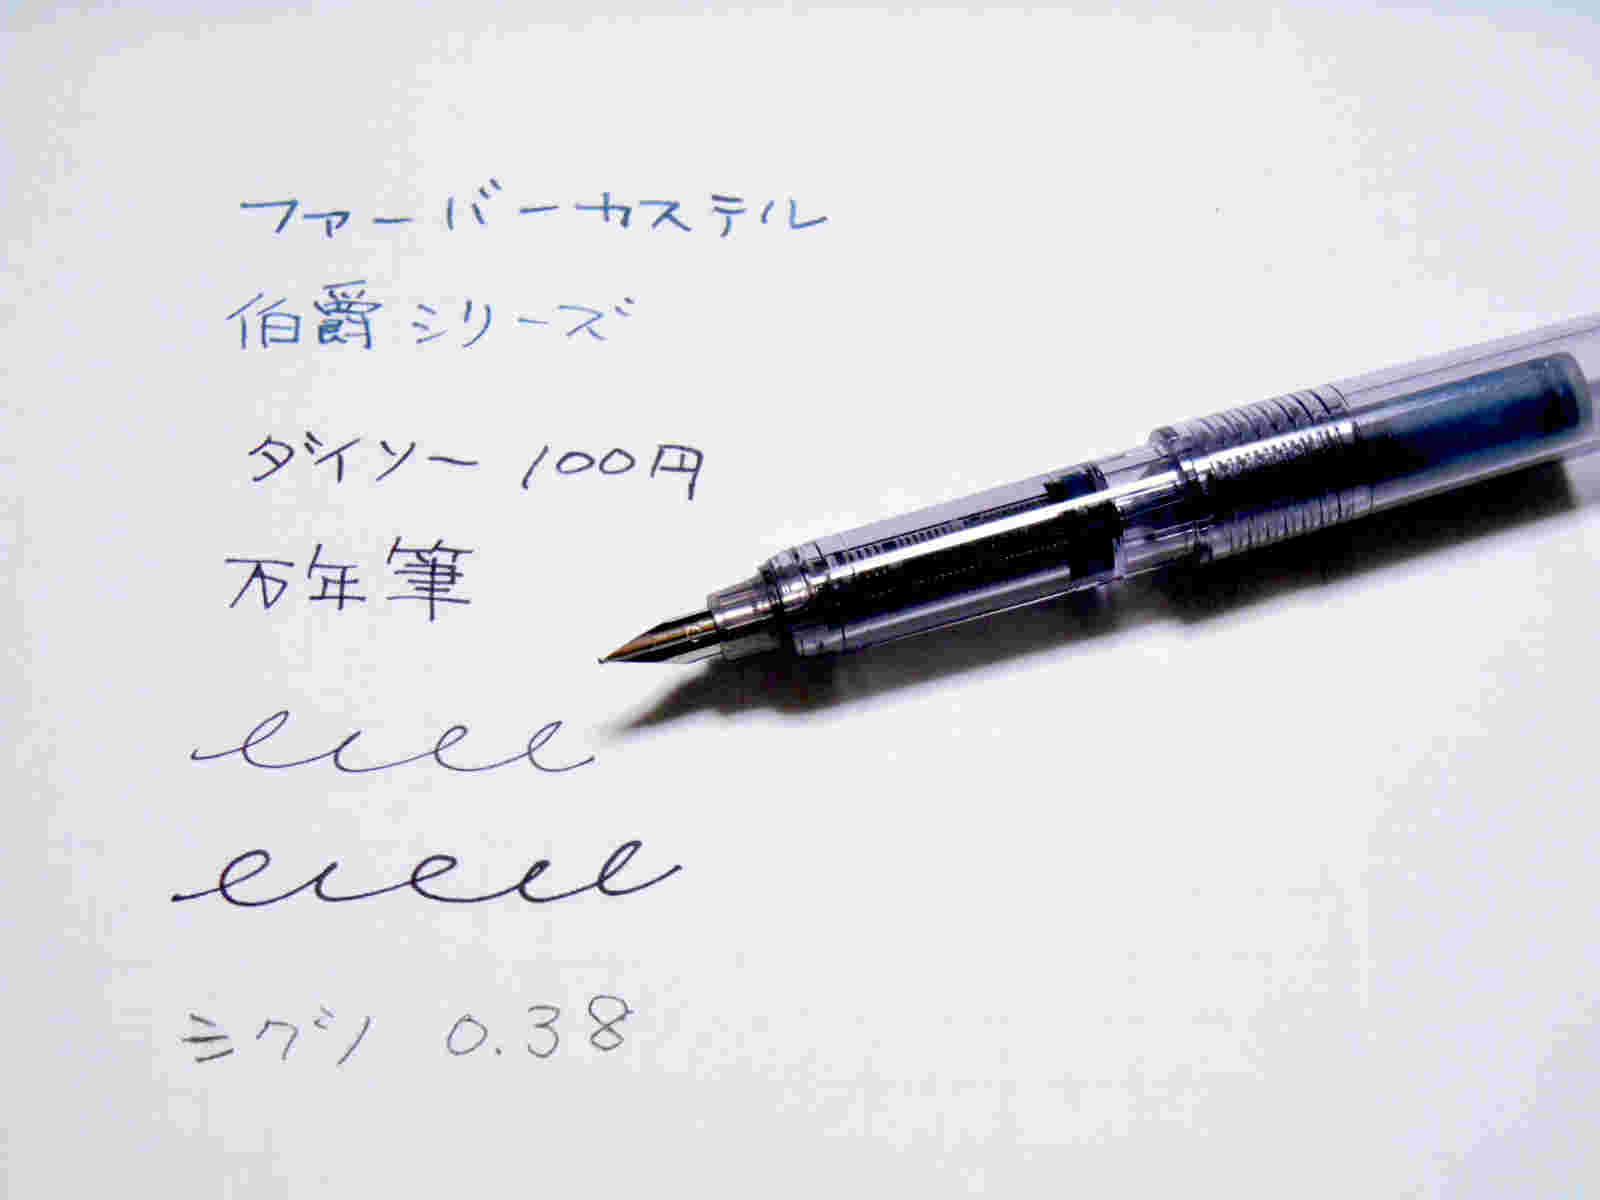 ファーバーカステル
伯爵シリーズ
ダイソー 100円
万年筆
シグノ 0.38